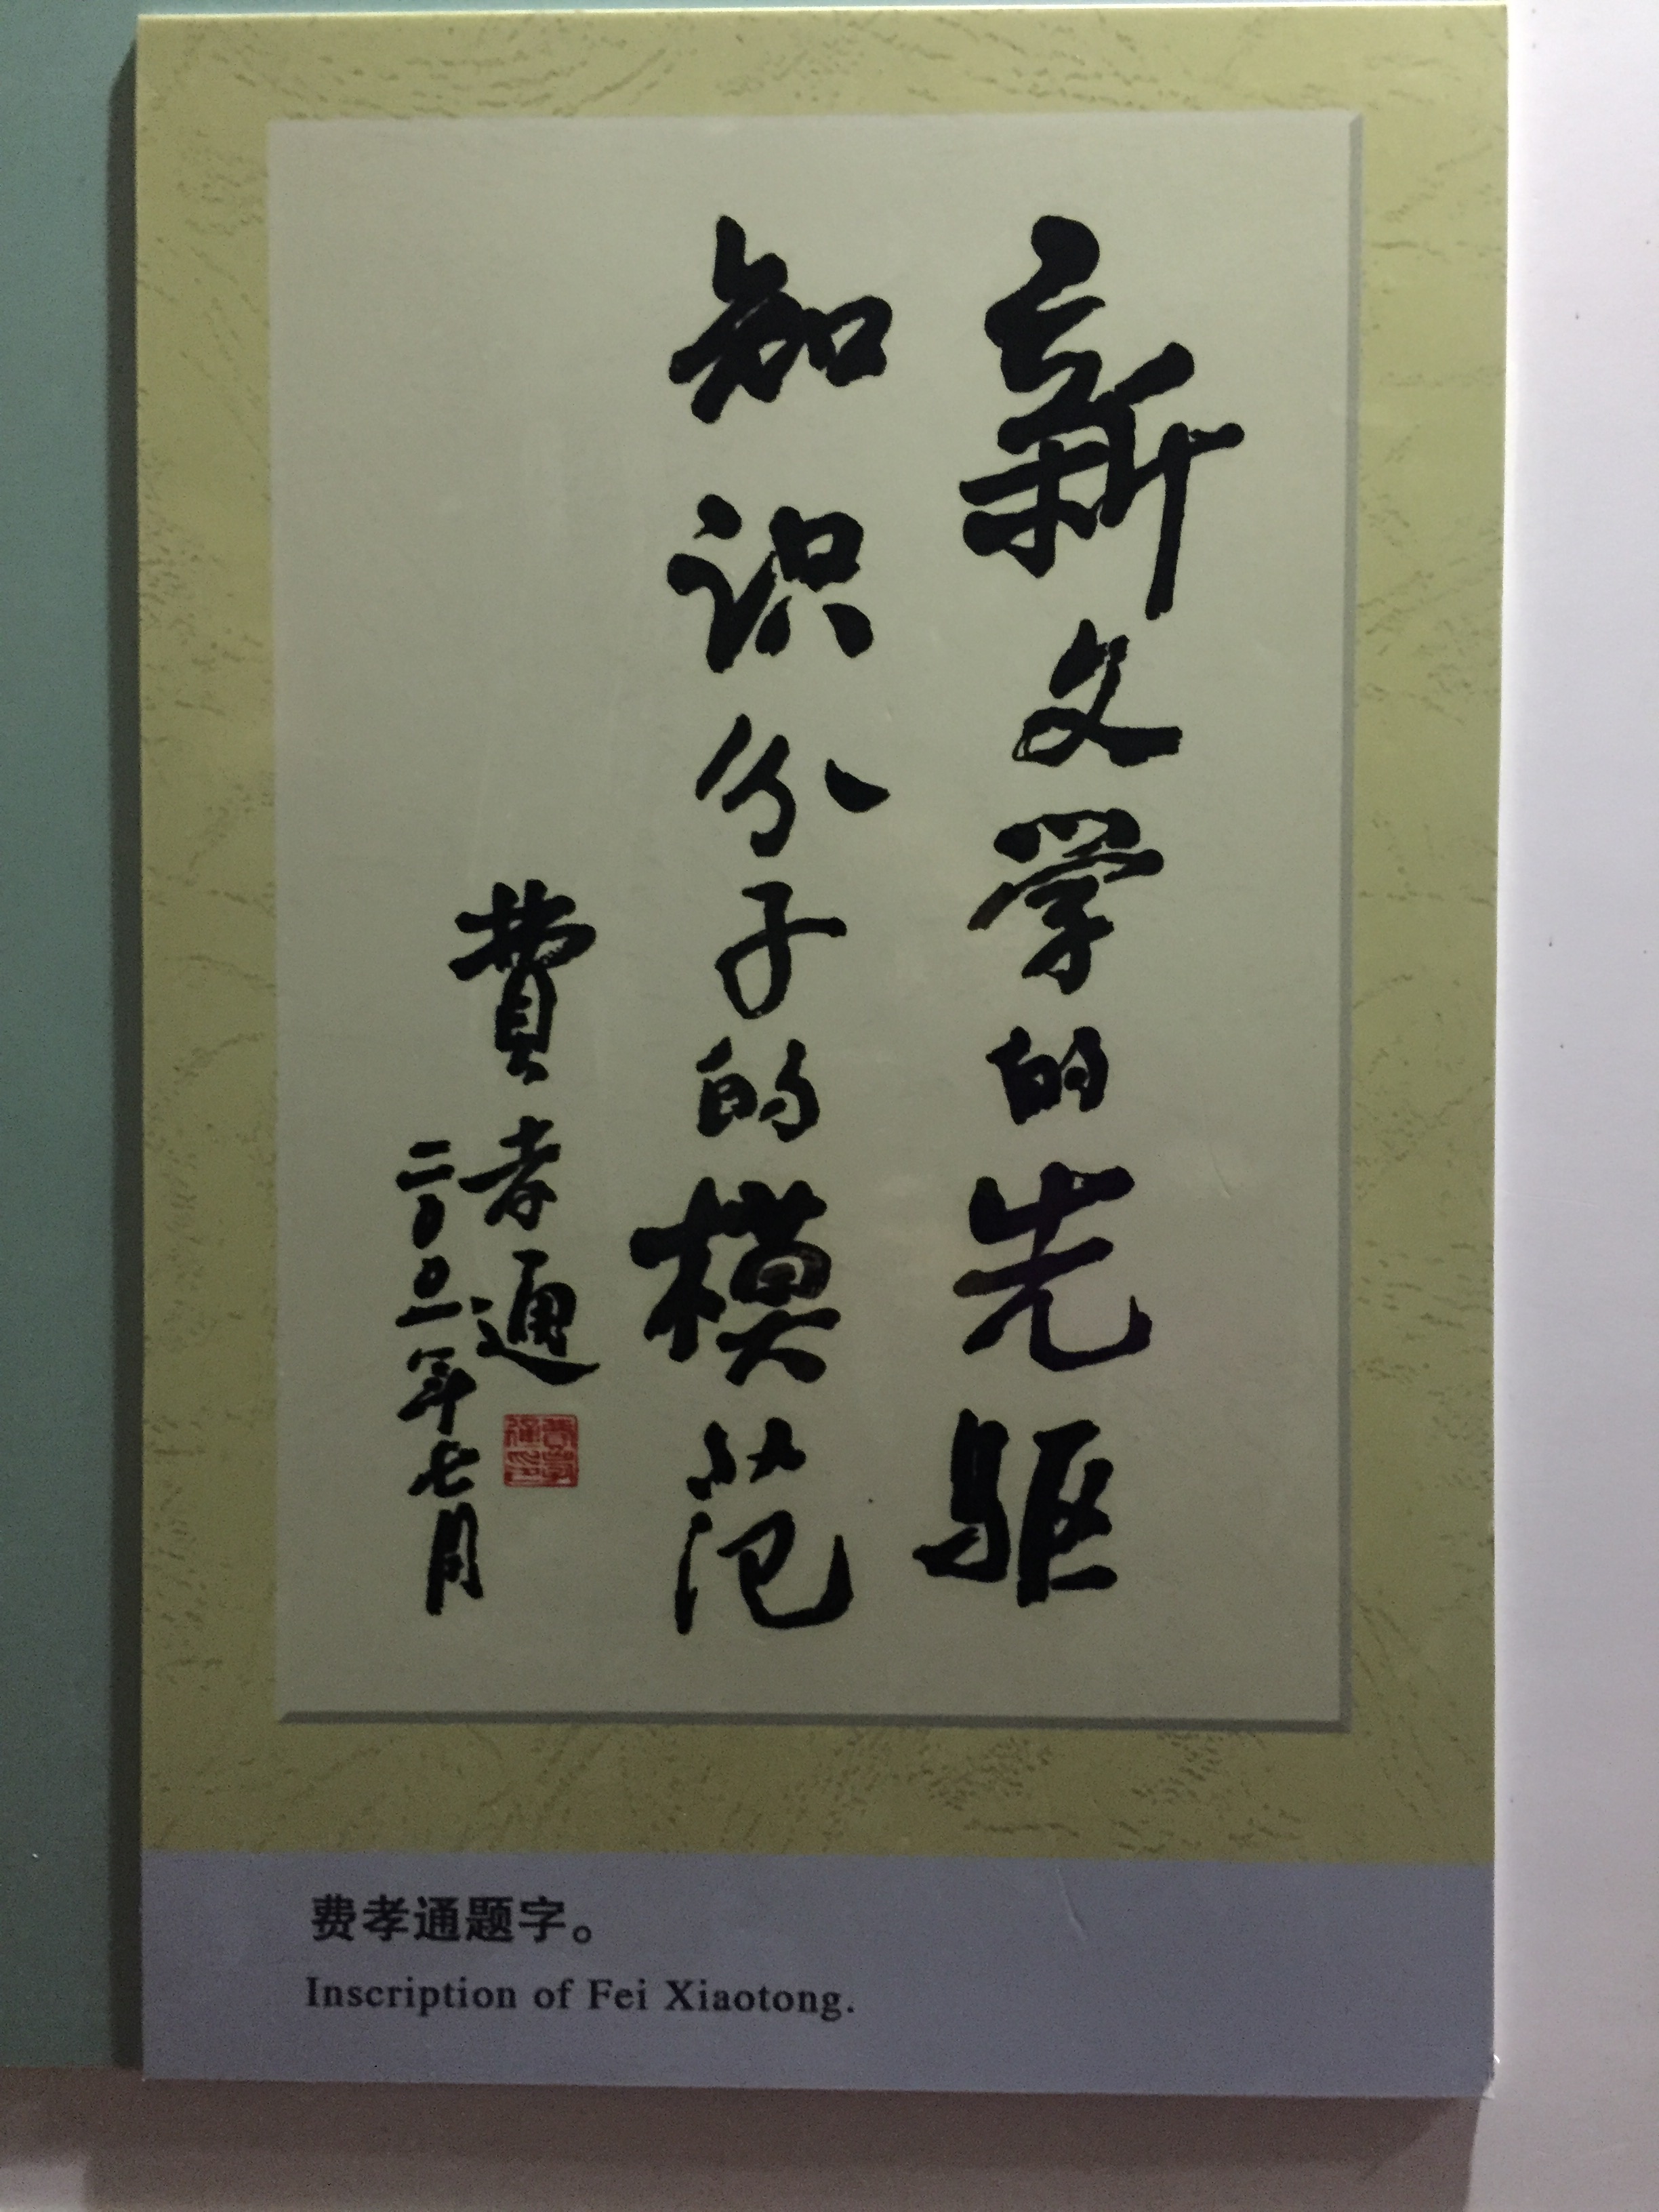 新文学的先驱
知识分子的模范
費孝通
二〇〇一年七月
費孝通印
费孝通题字。
Inscription of Fei Xiaotong.